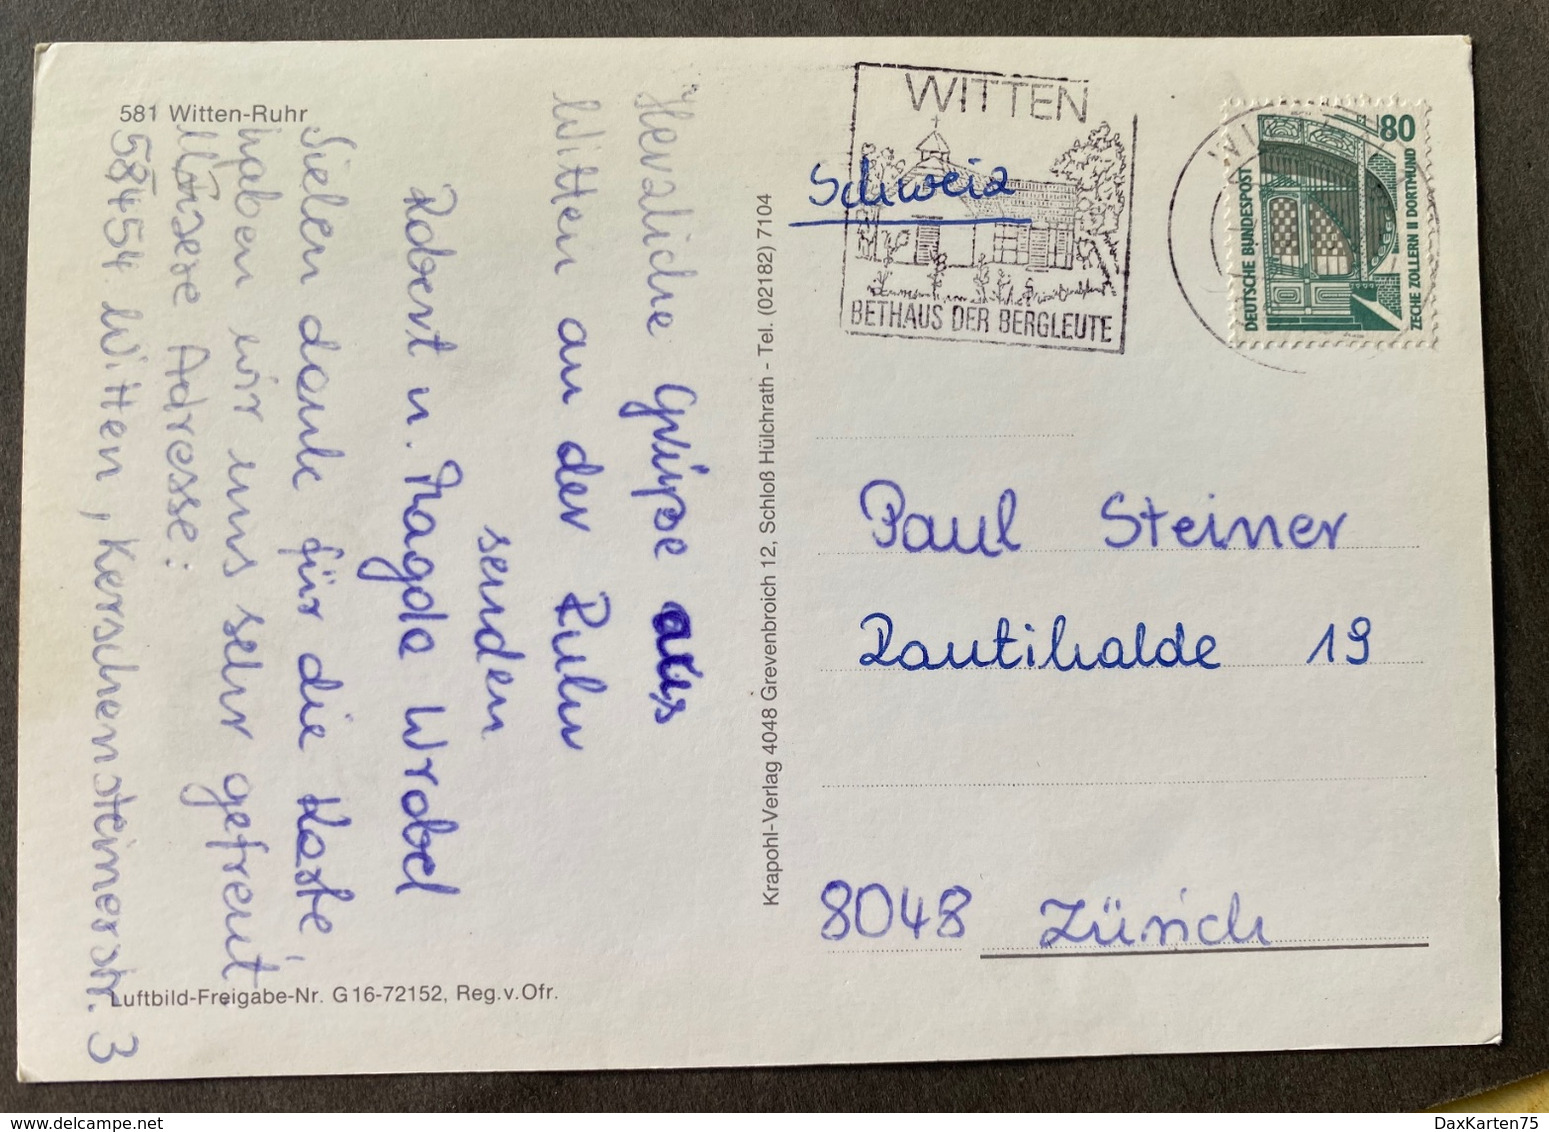 581 Witten-Ruhr
Herzliche Grüße aus
Witten an der Ruhr
senden
Robert u. Magda Wrobel
Vielen dank für die Karte,
haben wir uns sehr gefreut
Unsere Adresse:
58454 Witten, Kerschensteinerstr. 3
Luftbild-Freigabe-Nr. G16-72152, Reg.v.Ofr.
Krapohl-Verlag 4048 Grevenbroich 12, Schloß Hülchrath - Tel. (02182) 7104
WITTEN
BETHAUS DER BERGLEUTE
Schweiz
80
DEUTSCHE BUNDESPOST
ZECHE ZOLLERN II DORTMUND
Paul Steiner
Rautihalde 19
8048 Zürich
DaxKarten75